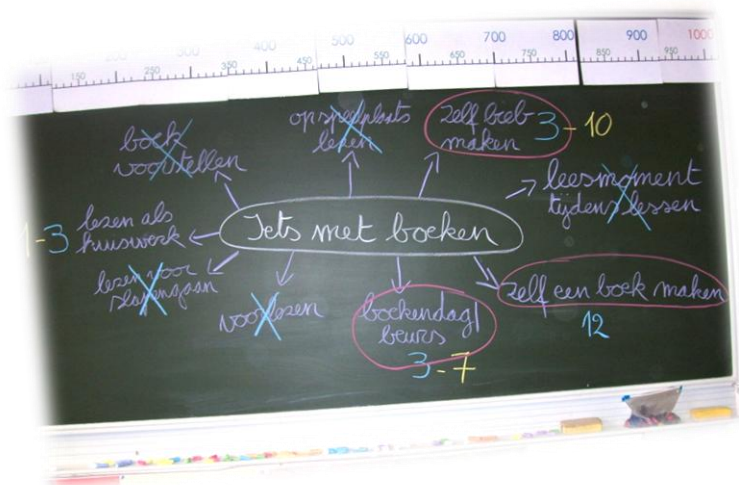 150 200 250 300 350 400 450 500 550 600 650 700 750 800 850 900 950 1000
boek
voorstellen
op speelplaats
lezen
zelf bieb
maken 3 - 10
leesmoment
tijdens lessen
1 - 3 lezen als
huiswerk
Iets met boeken
lezen voor
slapengaan
voorlezen
boekendag/
beurs
3 - 7
zelf een boek maken
12